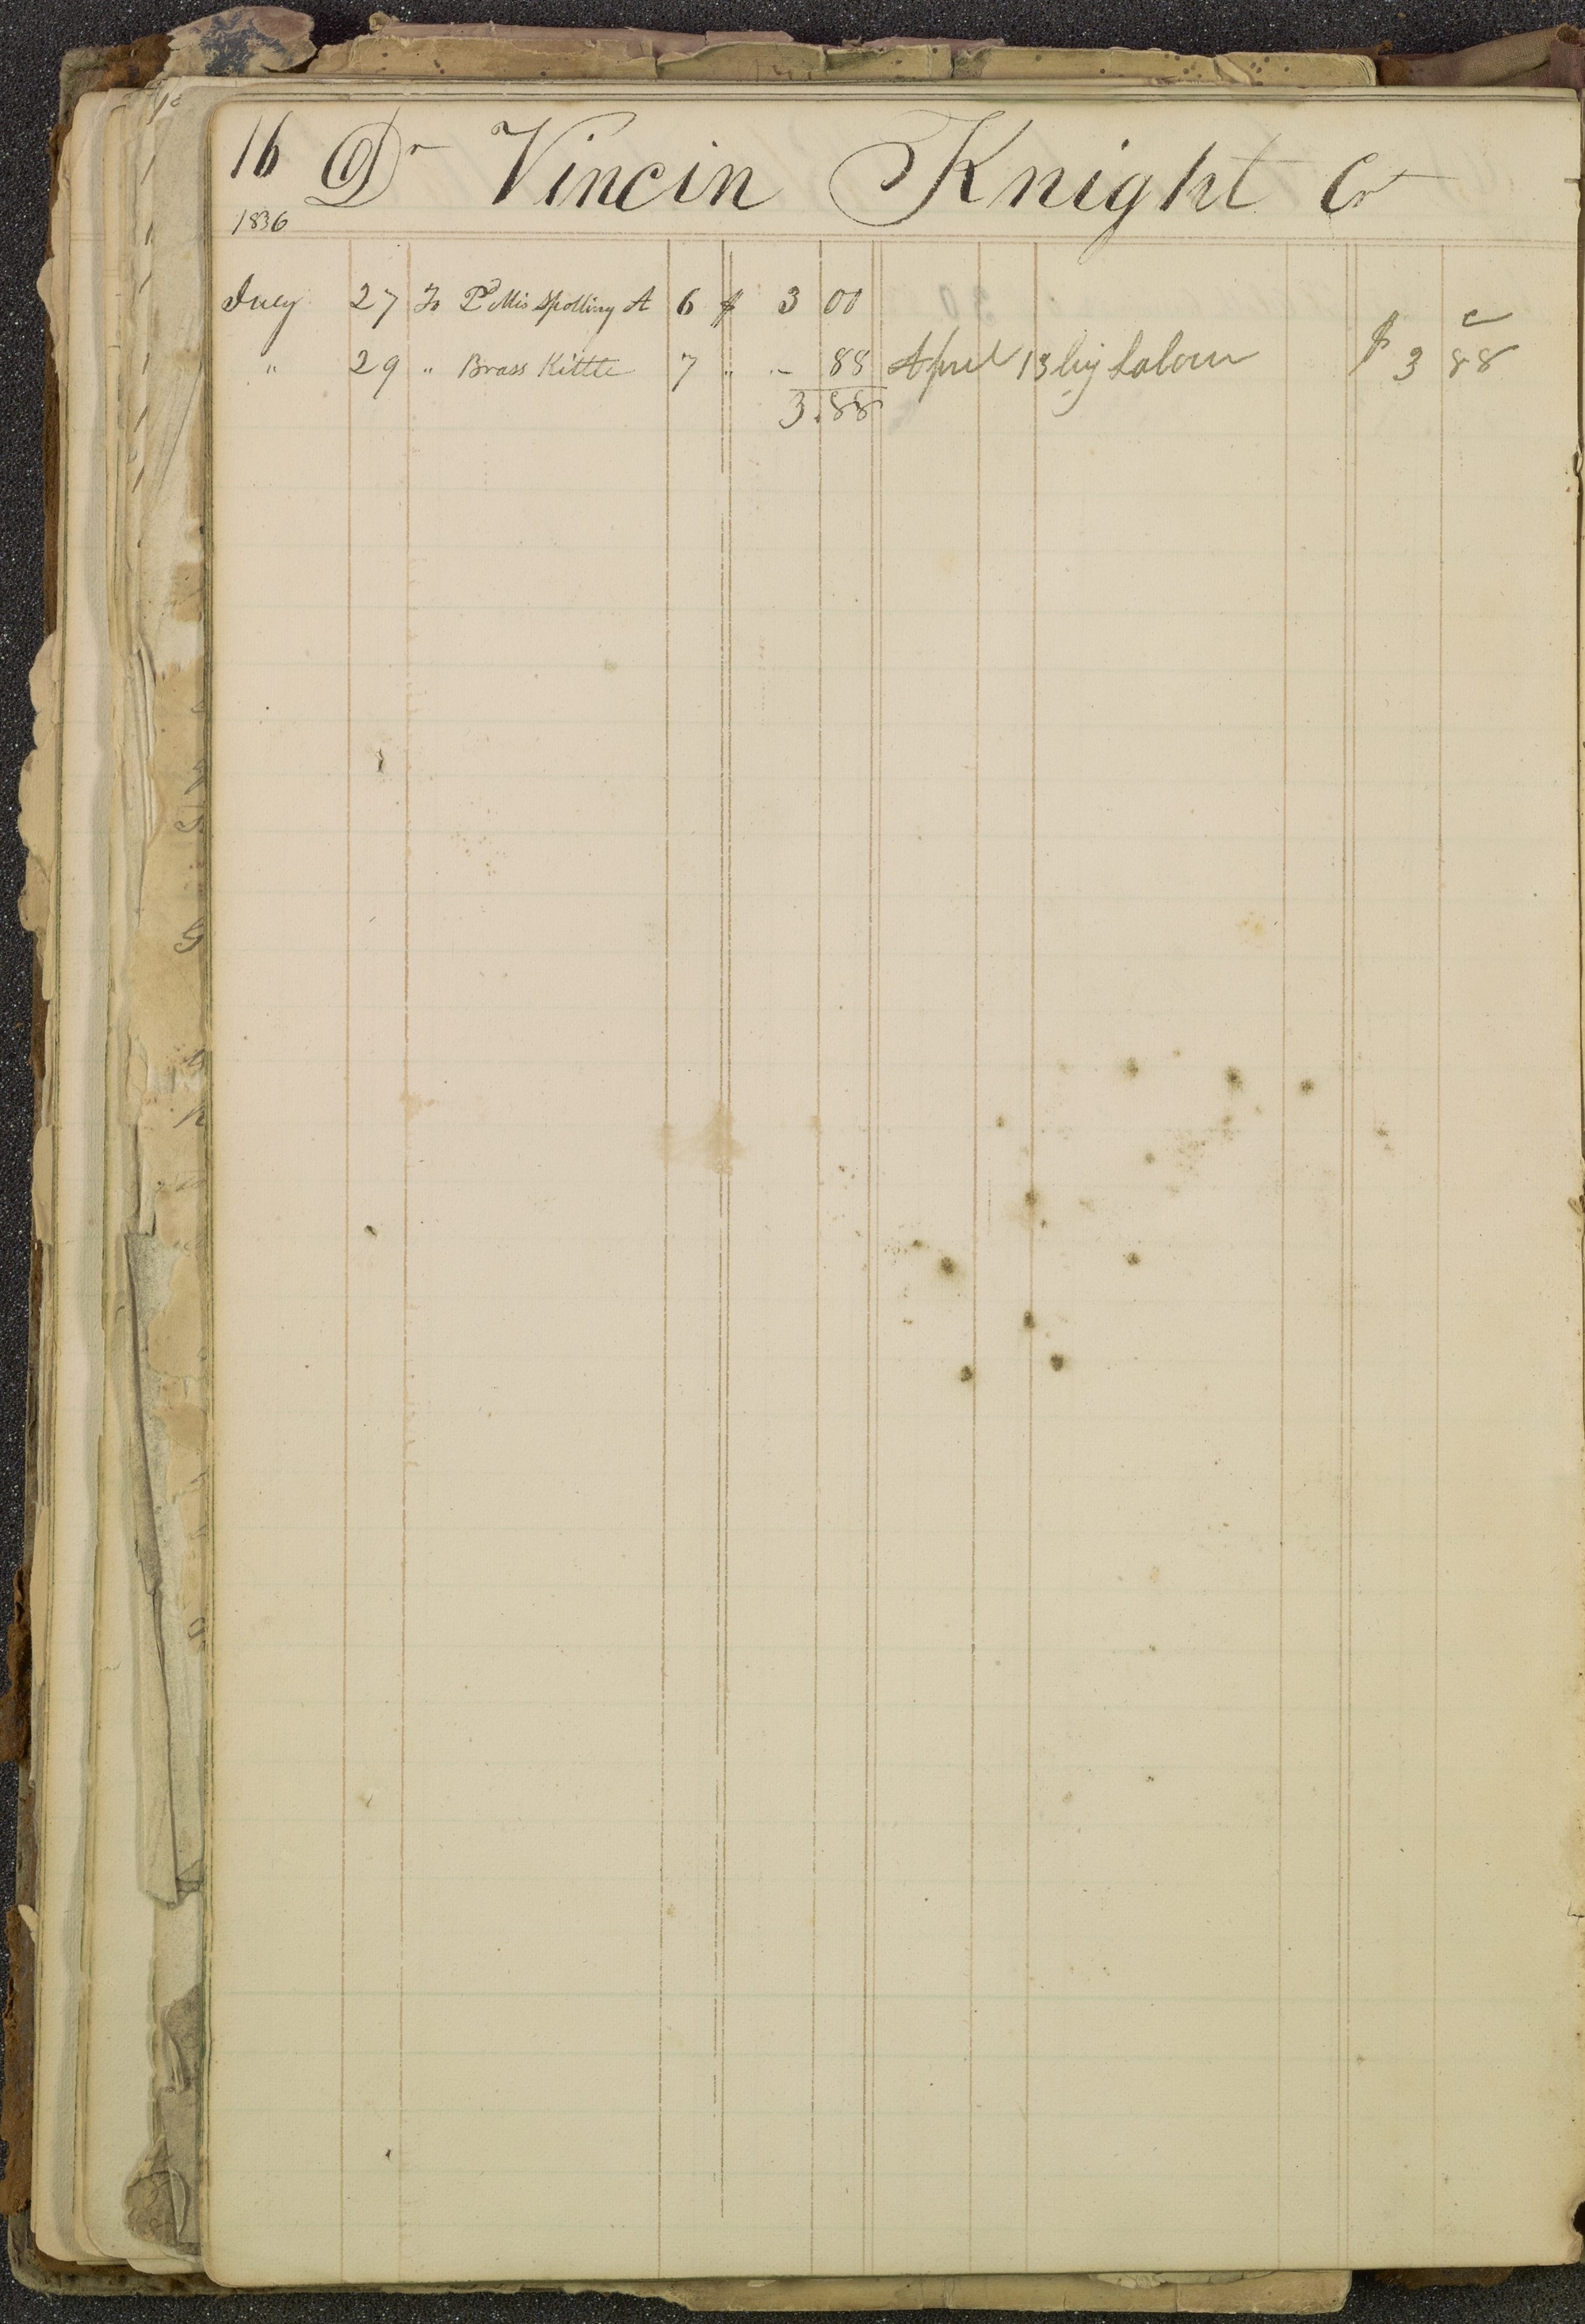 16 Dr Vincin Knight Cr
1836
July 27 To Pd Mis Spolling A 6 $ 3 00
" 29 " Brass Kittle 7 " - 88 April 13 by Labour $ 3 88 c
3.88